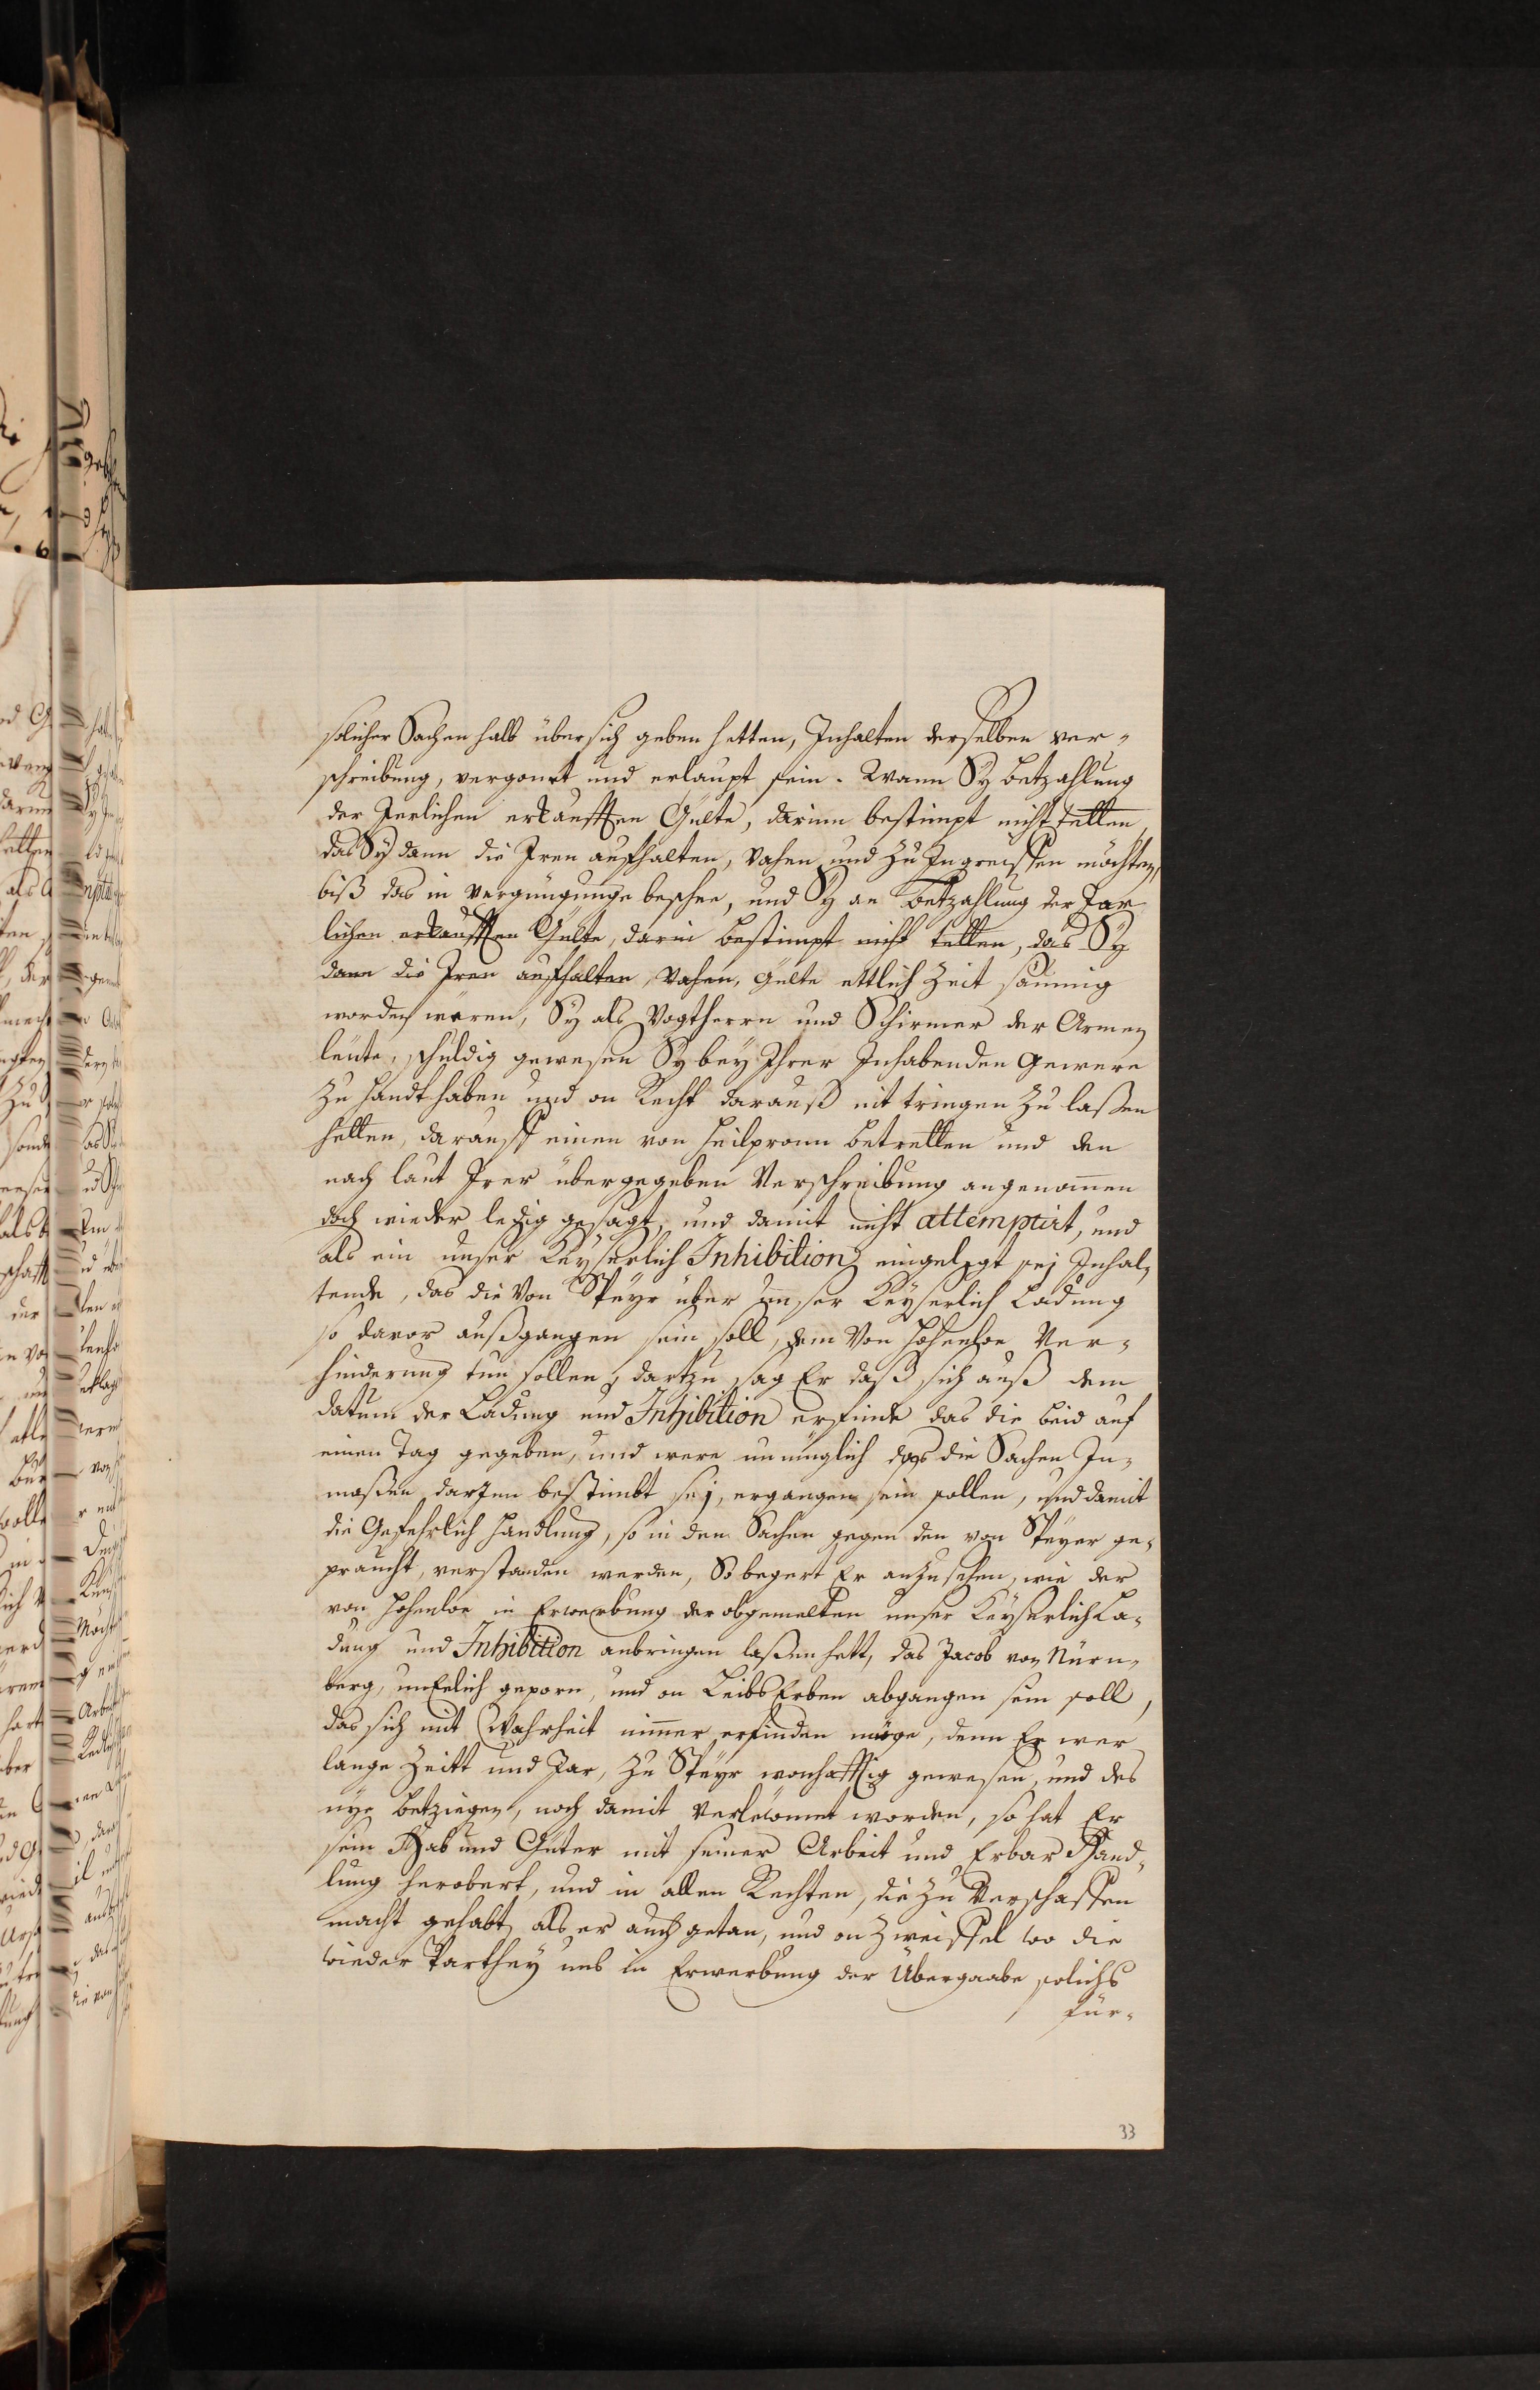 solicher Sachen halb über sich geben hetten, Inhalten derselben ver-
schreibung, vergonnt und erlaupt sein. Wann Sy betzahlung
der Jerlichen erkaufften Gülte, darinn bestimpt nicht tetten,
das Sy dann die Iren aufhalten, vahen und zu Ingreiffen möchten,
biß das in vergnügunge beschee, und Sy an betzahlung der Jar
lichen erkaufften Gulte, darin bestimpt nicht tetten, das Sy
dann die Iren aufhalten, vahen, Gülte ettlich Zeit säumig
worden wären, Sy als Vogtherrn und Schirmer der Armen
leute, schuldig gewesen Sy bey Ihrer Inhabenden Gewere
zu handthaben und on Recht darauß nit tringen zu laßen
hetten, darauff einen von Heilpronn betretten und den
nach laut Irer übergegeben Verschreibung angenommen
doch wieder ledig gesagt, und damit nicht attemptirt, und
als ein unser Keyserlich Inhibition eingelegt sej Inhal-
tende, das die Von Speyr über unser Keyserlich Ladung
so davor außgangen sein soll, dem Von Hohenloe Ver-
hinderung tun sollen, dartzu sag Er daß sich auß dem
datum der Ladung und Inhibition erfinde das die beid auf
einen Tag gegeben, und were unmüglich das die Sachen In-
maßen darInn bestimbt sej, ergangen sein sollen, und damit
die Gefehrlich Handlung, so in den Sachen gegen den von Speyer ge-
praucht, verstanden werden, So begert Er anzusehen, wie der
von Hohenloe in Erwerbung der obgemelten unser Keyserlich La-
dung und Inhibition anbringen laßen hett, das Jacob von Nürn-
berg, unEelich geporn, und on Leibs Erben abgangen sein soll,
das sich mit Wahrheit nimmer erfinden möge, denn Er wer
lange Zeitt und Jar, zu Speyr wonhafftig gewesen, und des
nye betziegen, noch damit verleumet worden, so hat Er
sein Hab und Güter mit seiner Arbeit und Erbar Hand-
lung herobert, und in allen Rechten, die zu Verschaffen
macht gehabt, als er auch getan, und on Zweiffel wo die
wieder Parthey uns in Erwerbung der Übergaabe solichs
für-
33